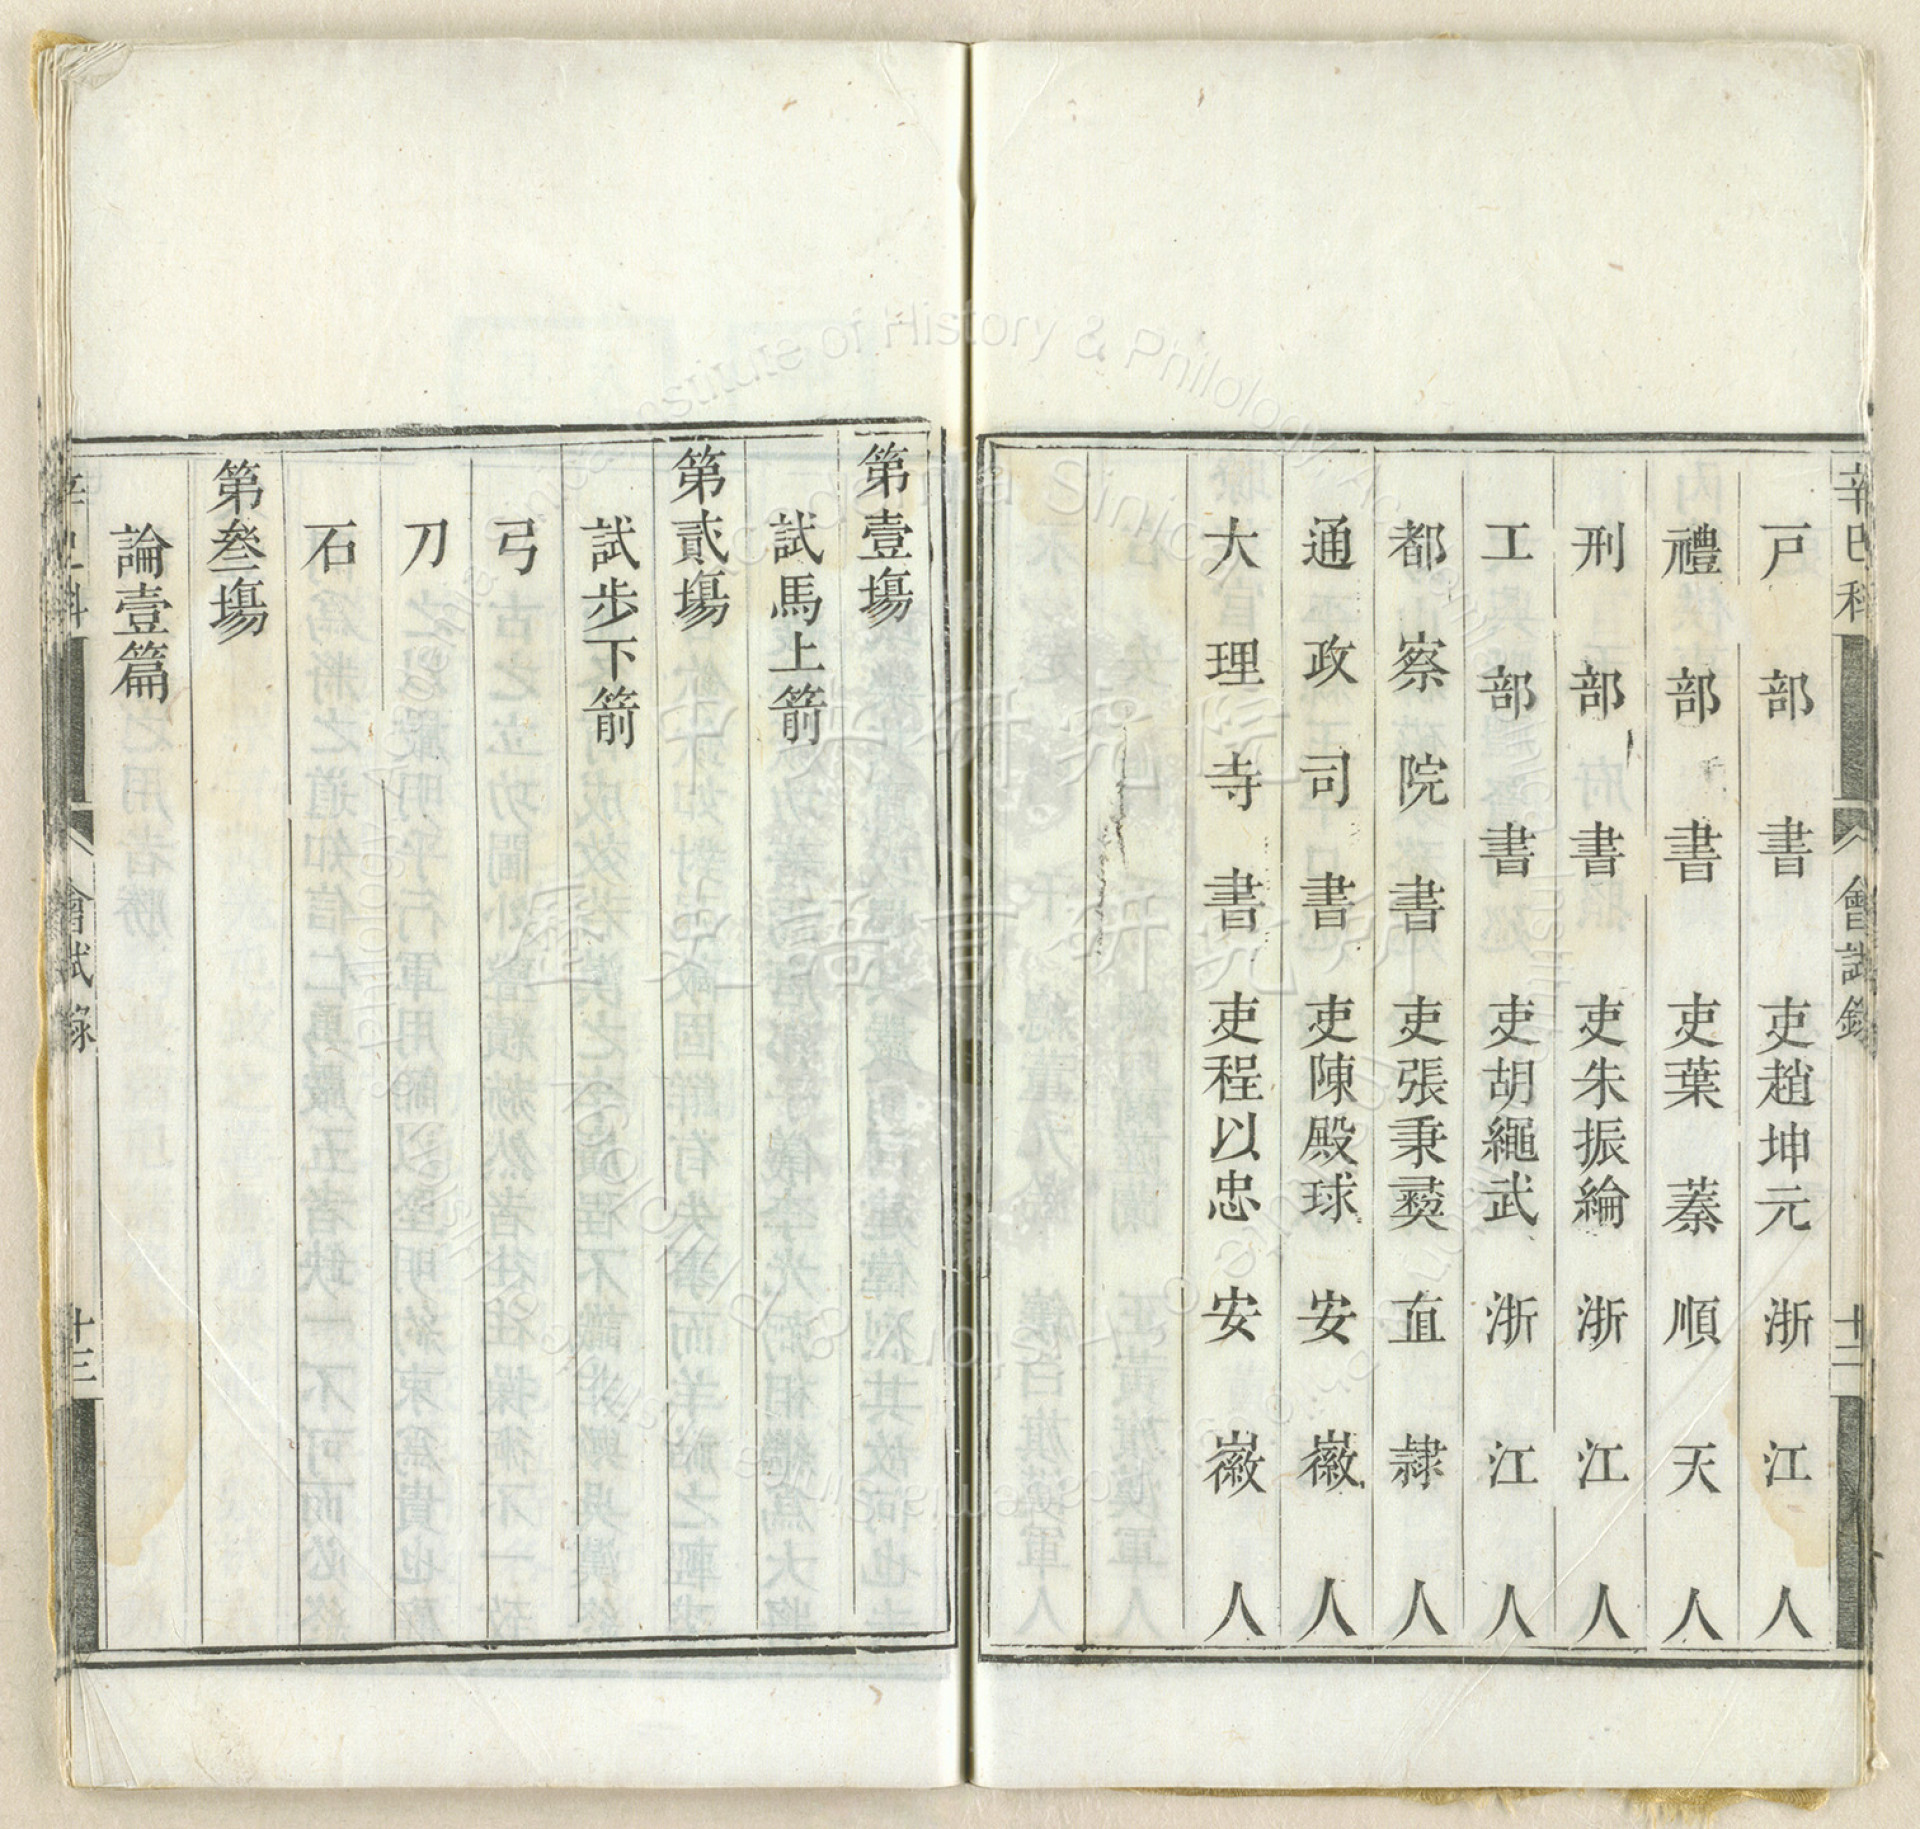 戸部書吏趙坤元浙江人
禮部書吏葉蓁順天人
刑部書吏朱振綸浙江人
工部書吏胡繩武浙江人
都察院書吏張秉彛直隷人
通政司書吏陳殿球安徽人
大理寺書吏程以忠安徽人
辛巳科 會試錄 十二
第壹塲
試馬上箭
第貳塲
試步下箭
弓
刀
石
第叄塲
論壹篇
會試錄 十三
Institute of History & Philology, Academia Sinica
中央研究院
歷史語言研究所